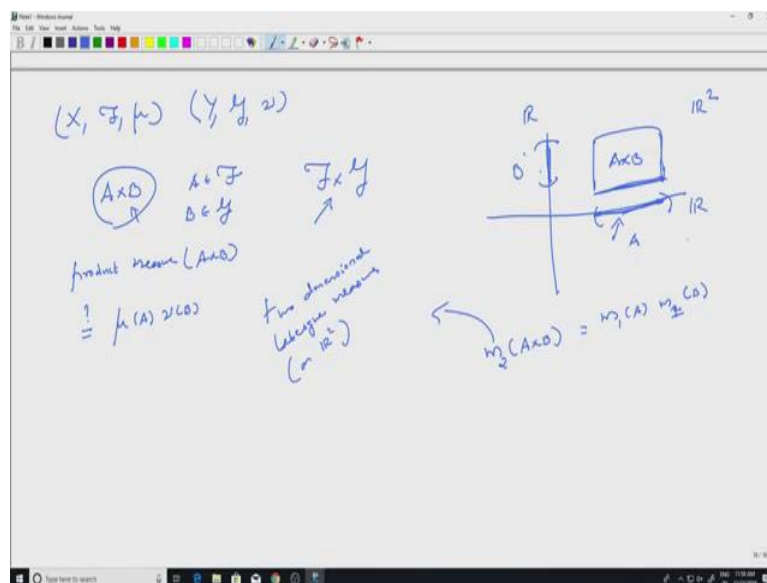 Note1 - Windows Journal
File Edit View Insert Actions Tools Help
(X, ℱ, μ) (Y, 𝒢, ν)
ℝ
ℝ²
A×B
A ∈ ℱ
B ∈ 𝒢
ℱ × 𝒢
B
A×B
ℝ
A
product measure (A×B)
?
= μ(A) ν(B)
two dimensional
Lebesgue measure
(on ℝ²)
m₂(A×B) = m₁(A) m₁(B)
Type here to search